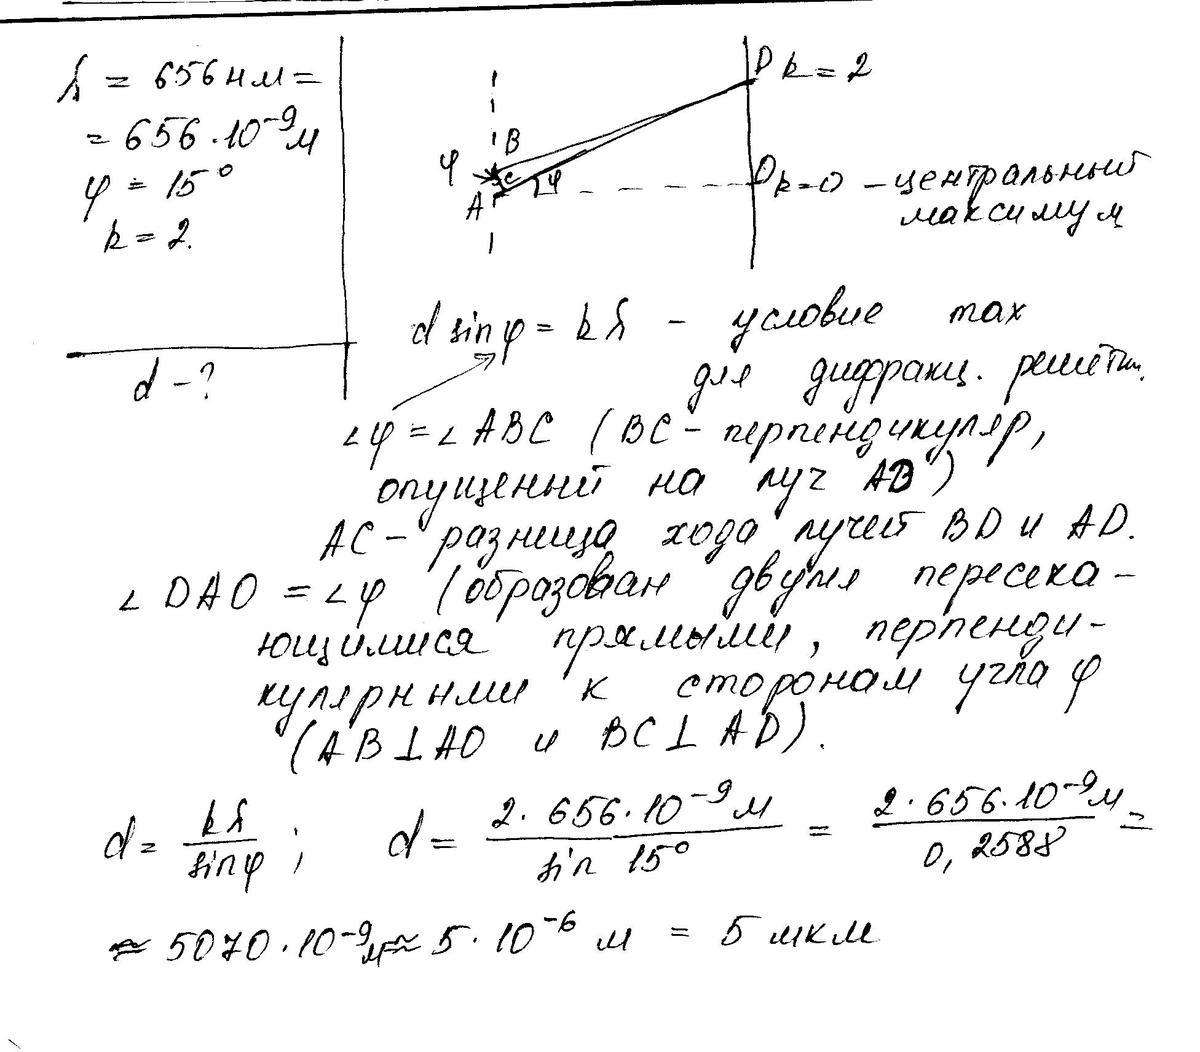 λ = 656 нм =
= 656 · 10⁻⁹ м
φ = 15°
k = 2.
d - ?
D k = 2
B
φ
C
φ
A
O k=0 - центральный
максимум
d sin φ = kλ - условие max
для дифракц. решётки.
∠φ = ∠ABC (BC - перпендикуляр,
опущенный на луч AD)
AC - разница хода лучей BD и AD.
∠DAO = ∠φ (образован двумя пересека-
ющимися прямыми, перпенди-
кулярными к сторонам угла φ
(AB⊥AO и BC⊥AD).
d = kλ / sin φ ; d = 2 · 656 · 10⁻⁹ м / sin 15° = 2 · 656 · 10⁻⁹ м / 0,2588 =
≈ 5070 · 10⁻⁹ м ≈ 5 · 10⁻⁶ м = 5 мкм